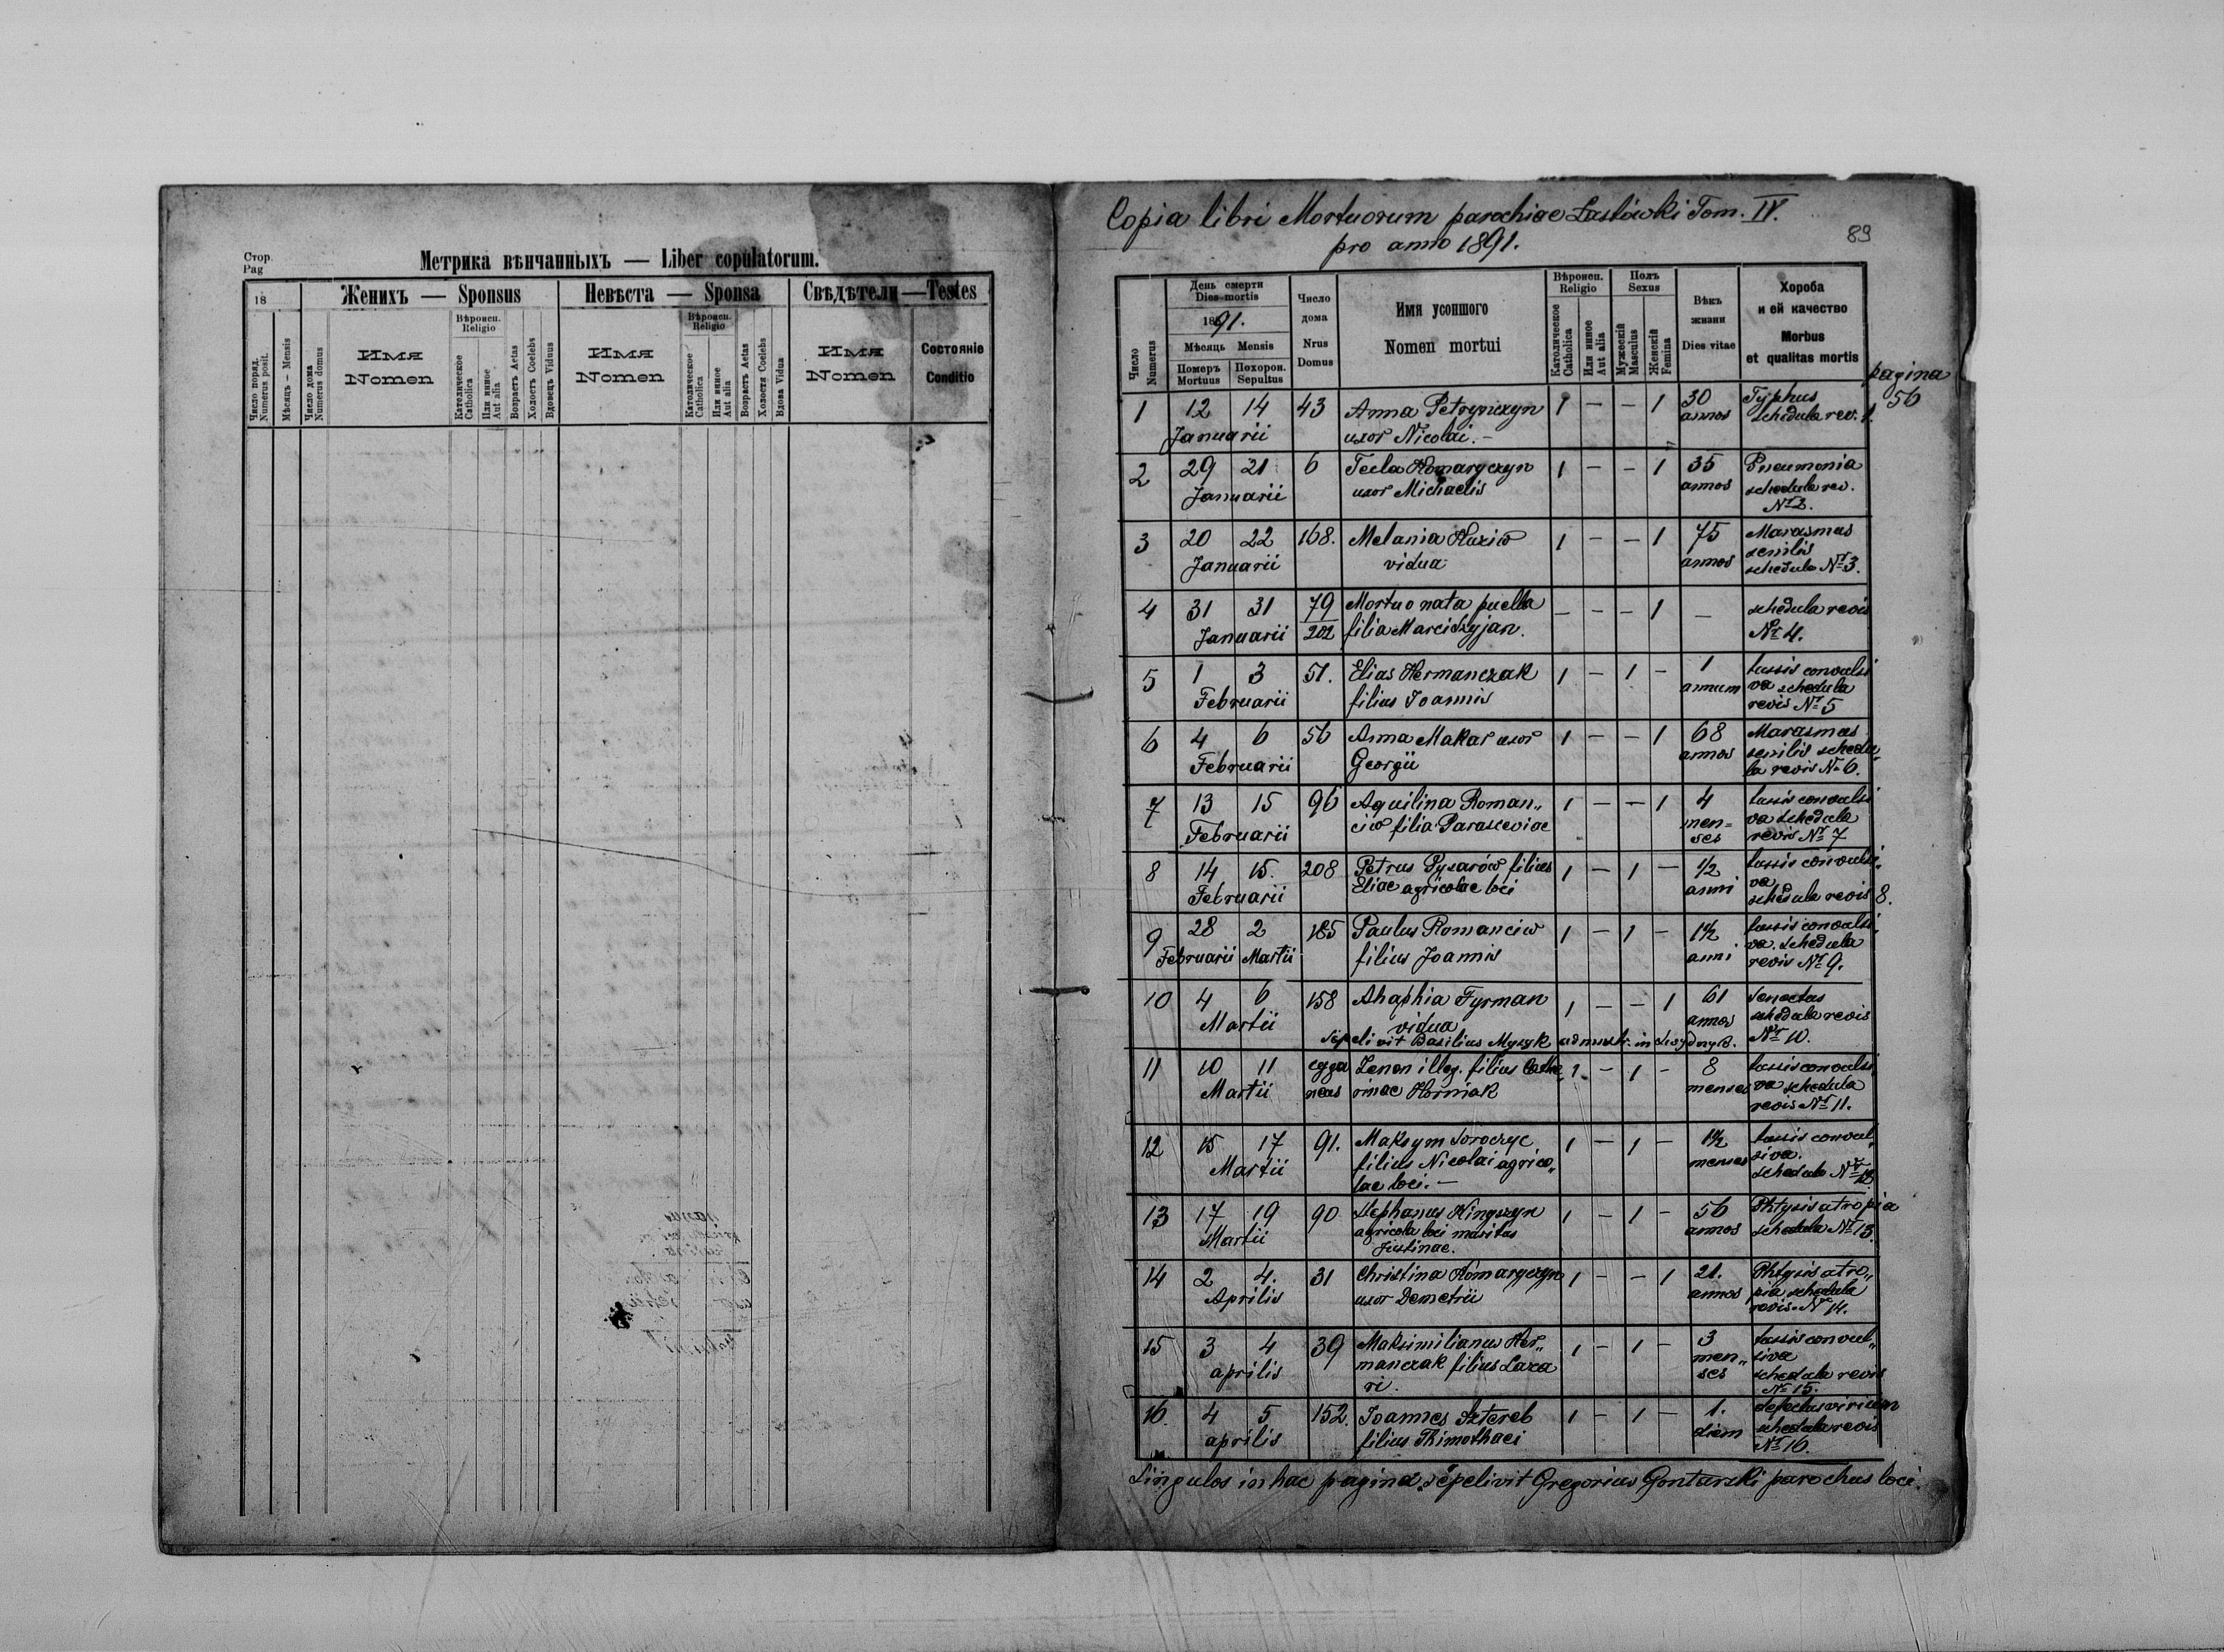 Стор.
Pag
Метрика вѣнчанныхъ — Liber copulatorum.
18
Женихъ — Sponsus
Невѣста — Sponsa
Свѣдѣтели — Testes
Число поряд.
Numerus posit.
Мѣсяць — Mensis
Число дома
Numerus domus
Имя
Nomen
Вѣроисп.
Religio
Католическое
Catholica
Или инное
Aut alia
Возрастъ Aetas
Холостъ Coelebs
Вдовецъ Viduus
Имя
Nomen
Вѣроисп.
Religio
Католическое
Catholica
Или инное
Aut alia
Возрастъ Aetas
Холостя Coelebs
Вдова Vidua
Имя
Nomen
Состояніе
Conditio
Copia libri Mortuorum parochiae Lastówki Tom. IV.
pro anno 1891.
89
Число
Numerus
День смерти
Dies mortis
1891.
Мѣсяць Mensis
Померъ
Mortuus
Похорон.
Sepultus
Число
дома
Nrus
Domus
Имя усопшого
Nomen mortui
Вѣроисп.
Religio
Католическое
Catholica
Или инное
Aut alia
Полъ
Sexus
Мужескій
Masculus
Женскій
Femina
Вѣкъ
жизни
Dies vitae
Хороба
и ей качество
Morbus
et qualitas mortis
pagina
56
1 12 14 43 Anna Petryszyn 1 — — 1 30 Typhus
Januarii uxor Nicolai. — annos schedula rev. 1.
2 29 21 6 Tecla Komaryczyn 1 — — 1 35 Pneumonia
Januarii uxor Michaelis annos schedula rev.
Nr 2.
3 20 22 168. Melania Kuziw 1 — — 1 75 Marasmus
Januarii vidua annos senilis
schedula Nr 3.
4 31 31 79 Mortuo nata puella — — — 1 — schedula revis
Januarii 202 filia Marci Szyjan. Nr 4.
5 1 3 51. Elias Hermanczak 1 — 1 — 1 tussis convulsi
Februarii filius Joannis annum va schedula
revis Nr 5
6 4 6 56 Anna Makar uxor 1 — — 1 68 Marasmus
Februarii Georgii annos senilis schedu„
la revis Nr 6.
7 13 15 96 Aquilina Roman„ 1 — — 1 4 tussis convulsi
Februarii ciw filia Parasceviae men= va schedula
ses revis Nr 7
8 14 15. 208 Petrus Pyzarów filius 1 — 1 — 1/2 tussis convulsi„
Februarii Eliae agricolae loci anni va
schedula revis 8.
9 28 2 185 Paulus Romanciw 1 — 1 — 1 1/2 tussis convulsi„
Februarii Martii filius Joannis anni va schedula
revis Nr 9.
10 4 6 158 Ahaphia Fyrman 1 — — 1 61 Senectus
Martii vidua annos schedula revis
Sepelivit Basilius Myzyk administr. in Nr 10.
11 10 11 Zenon illeg. filius Cathe„ 1. — 1 — 8 tussis convulsi„
Martii rinae Horniak menses va schedula
revis Nr 11.
12 15 17 91. Maksym Soroczyc 1 — 1 — 1 1/2 tussis convul„
Martii filius Nicolai agrico„ menses siva.
lae loci. — schedula Nr 12
13 17 19 90 Stephanus Kinyszyn 1 — 1 — 56 Phtysis atropia
Martii agricola loci maritus annos schedula Nr 13.
Justinae.
14 2 4. 31 Christina Komaryczyn 1 — — 1 21. Phtysis atro„
Aprilis uxor Demetrii annos pia schedula
revis. Nr 14.
15 3 4 39 Maksimilianus Her„ 1 — 1 — 3 tussis convul„
aprilis manczak filius Laza men„ siva
ri. ses schedula revis
Nr 15.
16. 4 5 152. Joannes Sztereb 1 — 1 — 1. defectus virium
aprilis filius Thimothaei diem schedula revis
Nr 16.
Singulos in hac pagina sepelivit Gregorius Gontarski parochus loci.